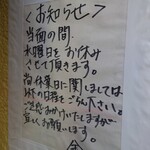 <お知らせ>
当面の間、
水曜日をお休み
させて頂きます。
尚、休業日に関しましては
の日程をご らん下さい。
ご迷惑おかけいたしますが
宜しくお願いします。